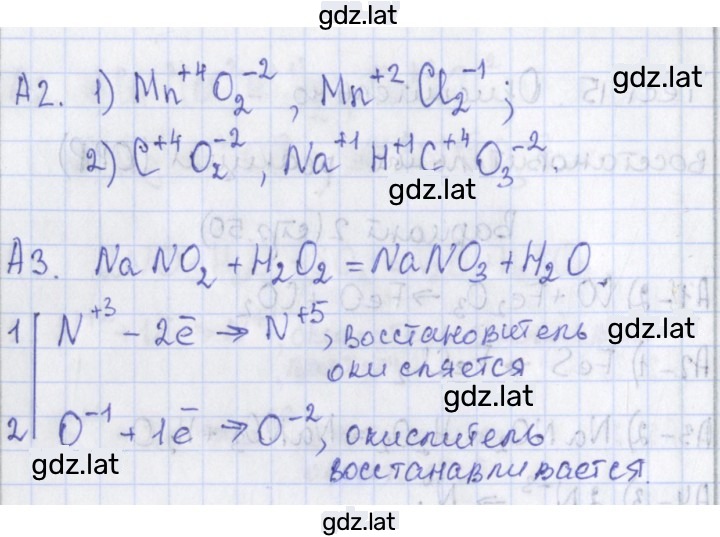 gdz.lat
А2. 1) Mn⁺⁴O₂⁻², Mn⁺²Cl₂⁻¹;
gdz.lat
2) C⁺⁴O₂⁻², Na⁺¹H⁺¹C⁺⁴O₃⁻².
gdz.lat
А3. NaNO₂ + H₂O₂ = NaNO₃ + H₂O
1 | N⁺³ - 2ē → N⁺⁵, восстановитель
gdz.lat
окисляется
gdz.lat
2 | O⁻¹ + 1ē → O⁻², окислитель
gdz.lat
восстанавливается.
gdz.lat